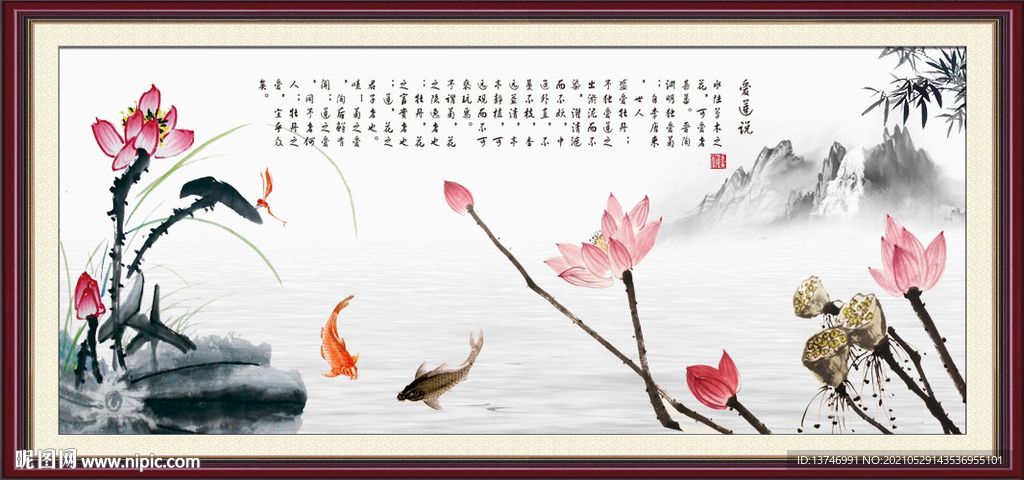 爱莲说
水陆草木之
花，可爱者
甚蕃。晋陶
渊明独爱菊
；自李唐来
，世人
盛爱牡丹；
予独爱莲之
出淤泥而不
染，濯清涟
而不妖，中
通外直，不
蔓不枝，香
远益清，亭
亭静植，可
远观而不可
亵玩焉。
予谓菊，花
之隐逸者也
；牡丹，花
之富贵者也
；莲，花之
君子者也。
噫！菊之爱
，陶后鲜有
闻；莲之爱
，同予者何
人；牡丹之
爱，宜乎众
矣。
昵图网 www.nipic.com
ID:13746991 NO:20210529143536955101